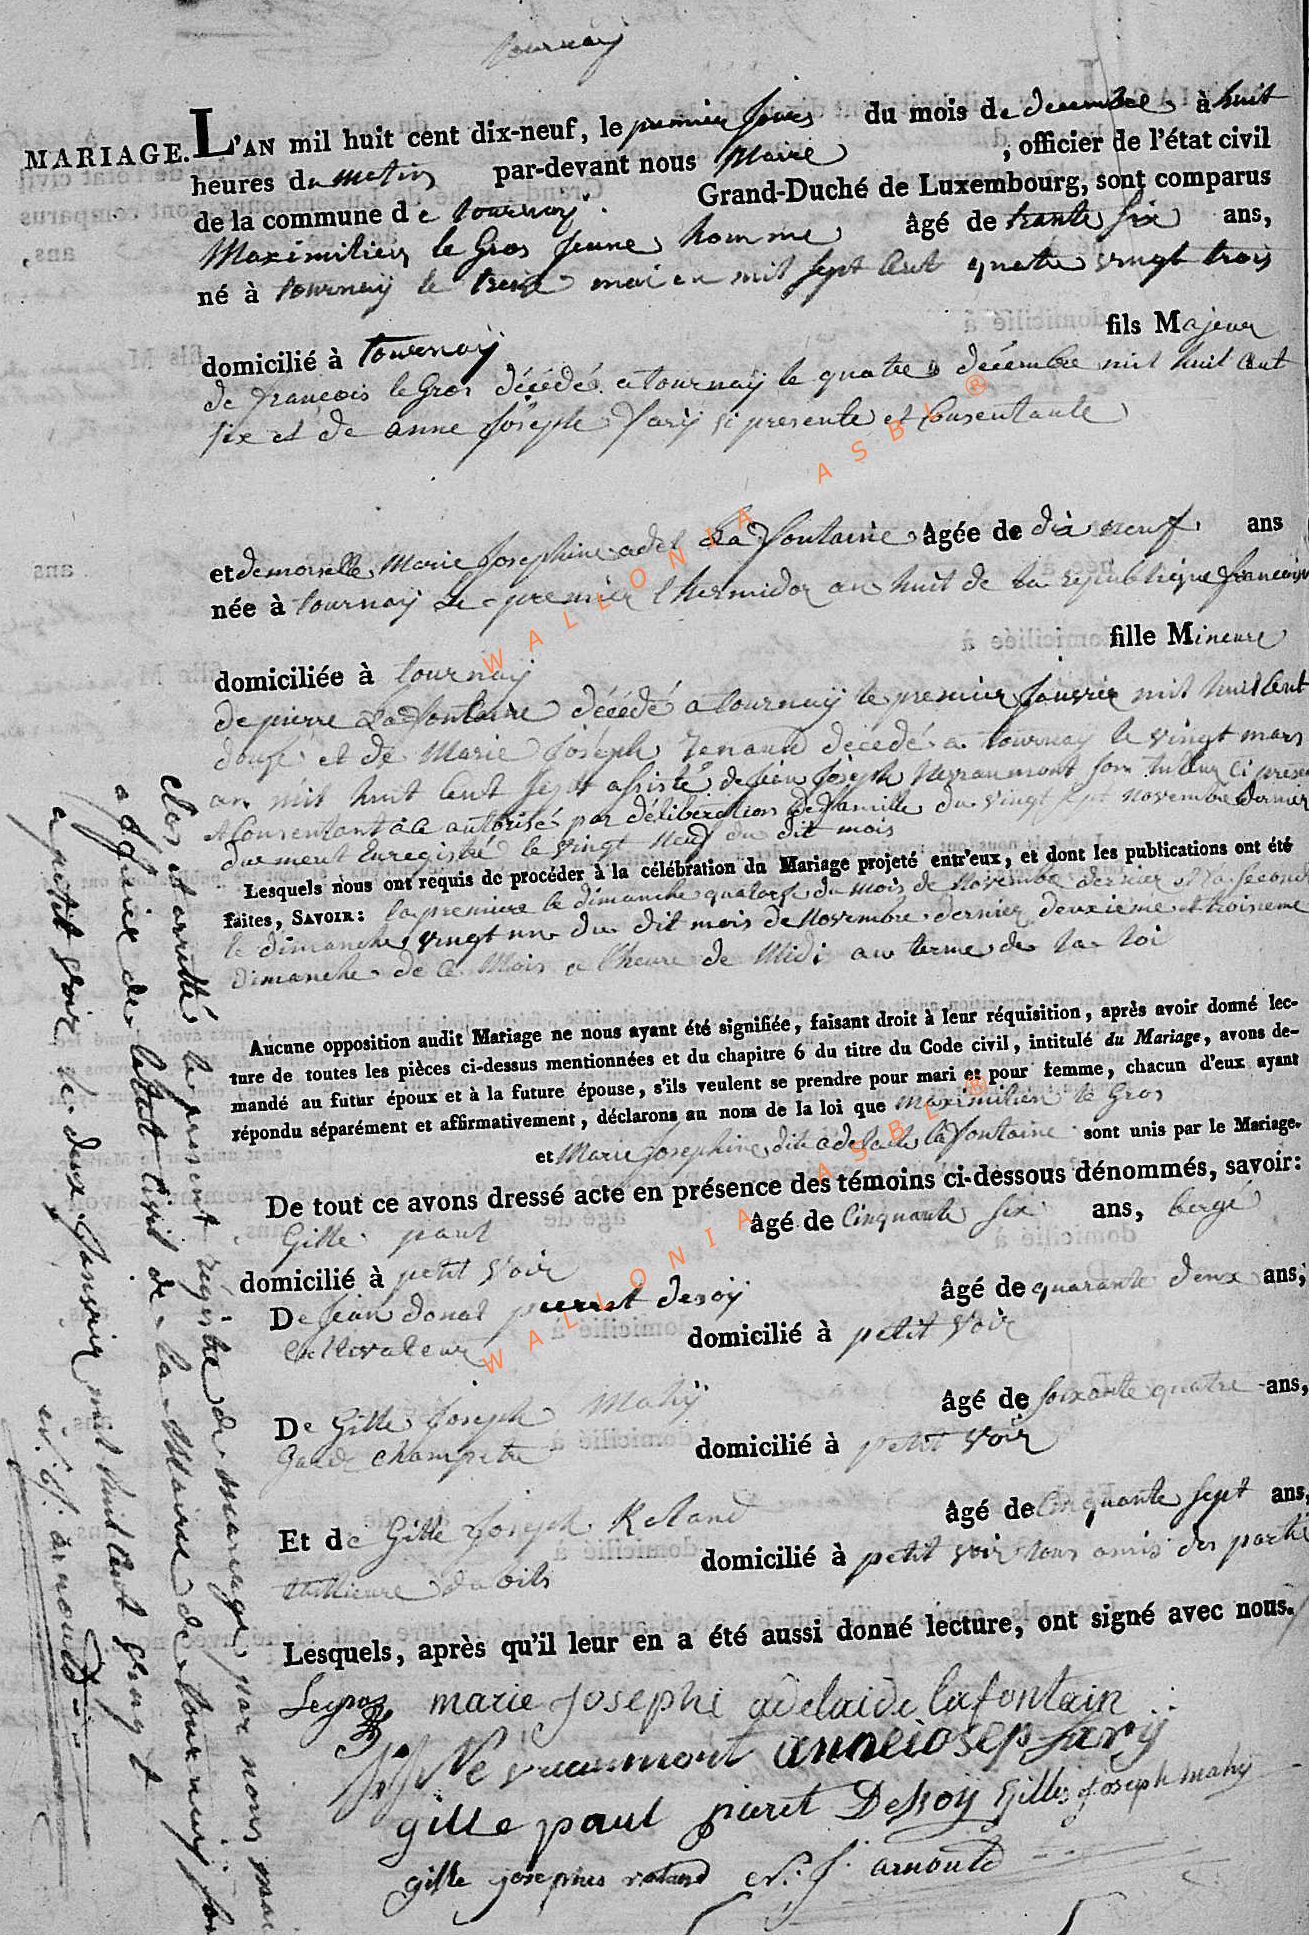 tournay
MARIAGE. L'AN mil huit cent dix-neuf, le premier jour du mois de decembre à huit
heures du matin par-devant nous Maire , officier de l'état civil
de la commune de tournay. Grand-Duché de Luxembourg, sont comparus
Maximilien le Gros jeune homme âgé de trante six ans,
né à tournaÿ le treize mai en mil sept Cent quatre vingt trois
fils Majeur
domicilié à tournaÿ
de francois le Gros décédé a tournaÿ le quatre décembre mil huit Cent
six et de anne joseph farÿ si presente et Consentante
et demoiselle Marie Josephine adel La fontaine âgée de dix neuf ans
née à tournaÿ Le premier thermidor an huit de la republique francaise
fille Mineure
domiciliée à tournaÿ
de pierre La fontaine décédé a tournaÿ le premier janvier mil huit Cent
douze et de Marie joseph decédé a tournaÿ le vingt mars
an mil huit Cent sept assisté de joseph Nevraumont son tuteur Ci present
et Consentant a ce autorisé par déliberation de famille du vingt sept novembre dernier
duement Enregistré le vingt neuf du dit mois
Lesquels nous ont requis de procéder à la célébration du Mariage projeté entr'eux, et dont les publications ont été
faites, SAVOIR: la premiere le dimanche quatorze du mois de Novembre dernier et la seconde
le dimanche vingt un du dit mois de Novembre dernier deuxieme et troisieme
dimanche de Ce Mois a l'heure de Midi au terme de la loi
Aucune opposition audit Mariage ne nous ayant été signifiée, faisant droit à leur réquisition, après avoir donné lec-
ture de toutes les pièces ci-dessus mentionnées et du chapitre 6 du titre du Code civil, intitulé du Mariage, avons de-
mandé au futur époux et à la future épouse, s'ils veulent se prendre pour mari et pour femme, chacun d'eux ayant
répondu séparément et affirmativement, déclarons au nom de la loi que Maximilien le Gros
et Marie Josephine dite adelaide la fontaine sont unis par le Mariage.
De tout ce avons dressé acte en présence des témoins ci-dessous dénommés, savoir:
Gille paul âgé de Cinquante six ans, bergé
domicilié à petit voir
De Jean donat pierret desoÿ âgé de quarante deux ans,
Cultivateur domicilié à petit voir
De Gille Joseph Mahÿ âgé de soixante quatre ans,
Garde champetre domicilié à petit voir
Et de Gille Joseph Roland âgé de Cinquante sept ans,
domicilié à petit voir tous amis des partie
Lesquels, après qu'il leur en a été aussi donné lecture, ont signé avec nous.
Legros marie josephe adelaide lafontain
Nevraumont anneiosep farÿ
gille paul pieret Desoÿ Gille joseph mahy
gille josephus roland N. J. arnould
Clos et arretté le present régistre de mariage par nous maire
officier de l'etat Civil de la Mairie de tournaÿ
a petit voir le deux janvier mil huit Cent vingt
N. J. arnould
WALLONIA ASBL ®
WALLONIA ASBL ®